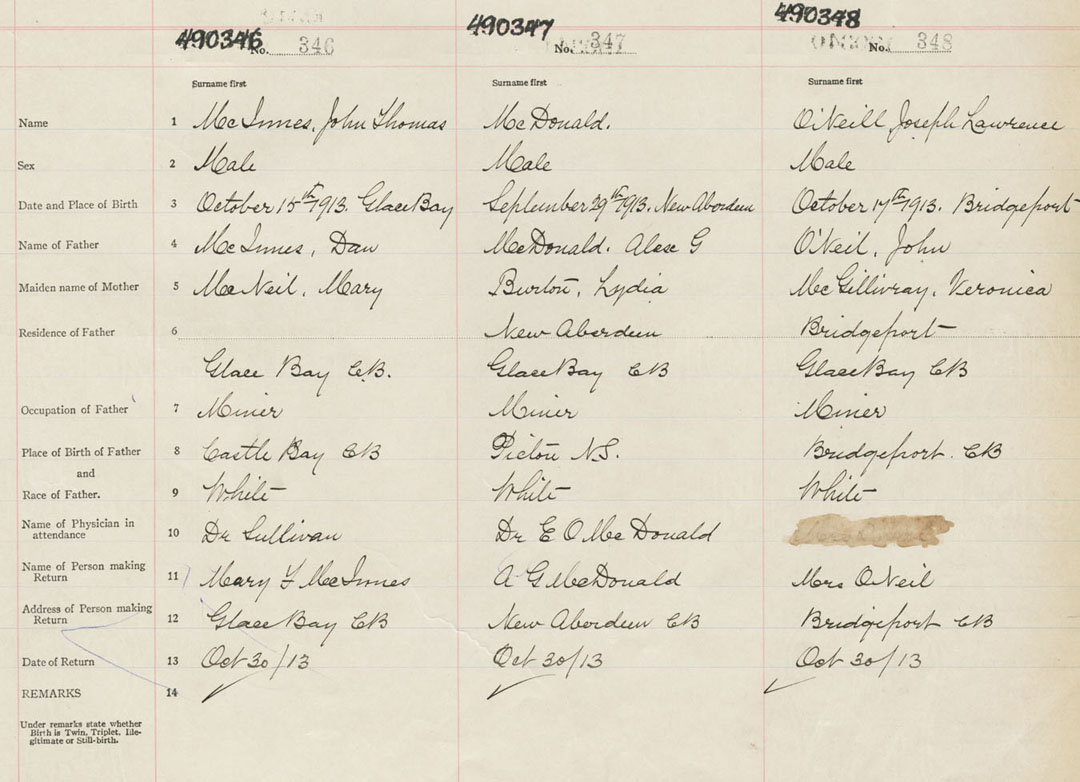 490346 490347 490348
No. 346 No. 347 No. 348
Surname first Surname first Surname first
Name 1 McInnes, John Thomas McDonald. O'Neill Joseph Lawrence
Sex 2 Male Male Male
Date and Place of Birth 3 October 15th 1913. Glace Bay September 29th 1913. New Aberdeen October 17th 1913. Bridgeport
Name of Father 4 McInnes, Dan McDonald. Alex G O'Neil, John
Maiden name of Mother 5 McNeil, Mary Burton, Lydia McGillivray, Veronica
Residence of Father 6 New Aberdeen Bridgeport
Glace Bay CB. Glace Bay CB Glace Bay CB
Occupation of Father 7 Miner Miner Miner
Place of Birth of Father 8 Castle Bay CB Pictou N.S. Bridgeport. CB
and
Race of Father. 9 White White White
Name of Physician in
attendance 10 Dr Sullivan Dr E O McDonald
Name of Person making
Return 11 Mary F McInnes A G McDonald Mrs O'Neil
Address of Person making
Return 12 Glace Bay CB New Aberdeen CB Bridgeport CB
Date of Return 13 Oct 30/13 Oct 30/13 Oct 30/13
REMARKS 14
Under remarks state whether
Birth is Twin, Triplet, Ille-
gitimate or Still-birth.